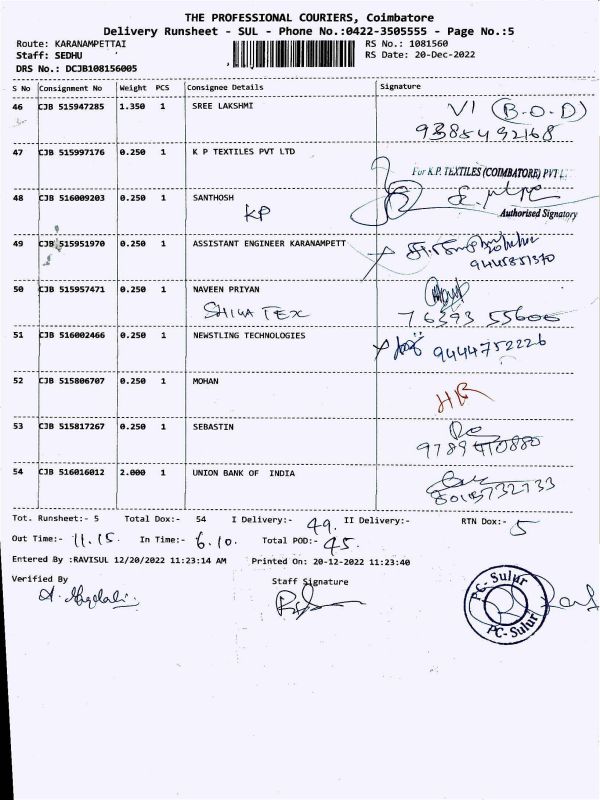 THE PROFESSIONAL COURIERS, Coimbatore
Delivery Runsheet - SUL - Phone No.:0422-3505555 - Page No.:5
Route: KARANAMPETTAI RS No.: 1081560
Staff: SEDHU RS Date: 20-Dec-2022
DRS No.: DCJB108156005
S No Consignment No Weight PCS Consignee Details Signature
46 CJB 515947285 1.350 1 SREE LAKSHMI VI (B.O.D)
9385492168
47 CJB 515997176 0.250 1 K P TEXTILES PVT LTD
For K.P. TEXTILES (COIMBATORE) PVT L
48 CJB 516009203 0.250 1 SANTHOSH
KP Authorised Signatory
49 CJB 515951970 0.250 1 ASSISTANT ENGINEER KARANAMPETT
9445851370
50 CJB 515957471 0.250 1 NAVEEN PRIYAN
SHIVA TEX 76393 55600
51 CJB 516002466 0.250 1 NEWSTLING TECHNOLOGIES
9444752226
52 CJB 515806707 0.250 1 MOHAN
HR
53 CJB 515817267 0.250 1 SEBASTIN
54 CJB 516016012 2.000 1 UNION BANK OF INDIA
Tot. Runsheet:- 5 Total Dox:- 54 I Delivery:- 49. II Delivery:- RTN Dox:- 5
Out Time:- 11.15. In Time:- 6.10. Total POD:- 45.
Entered By :RAVISUL 12/20/2022 11:23:14 AM Printed On: 20-12-2022 11:23:40
Verified By Staff Signature
PC- Sulur
PC- Sulur